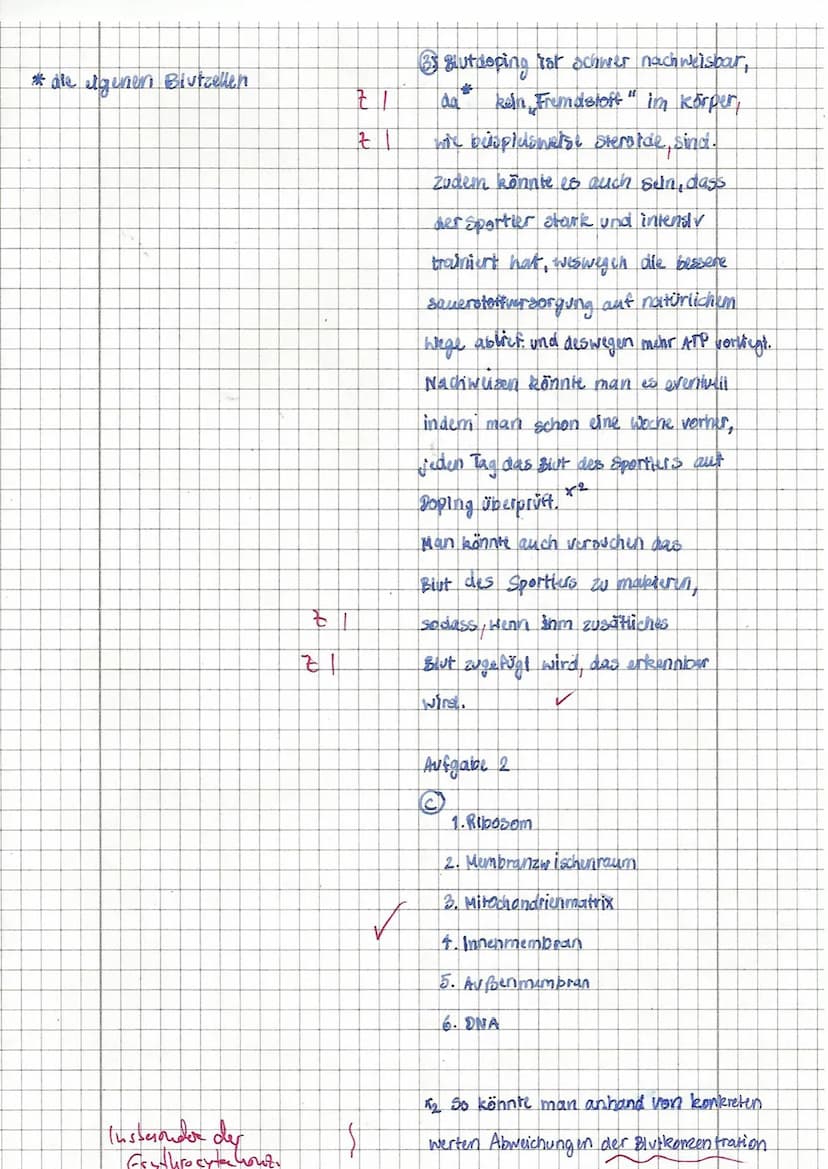 * die eigenen Blutzellen
③ Blutdoping ist schwer nachweisbar,
Z | da* kein „Fremdstoff" im Körper,
Z | wie beispielsweise Steroide, sind.
Zudem könnte es auch sein, dass
der Sportler stark und intensiv
trainiert hat, weswegen die bessere
Sauerstoffversorgung auf natürlichem
Wege ablief und deswegen mehr ATP vorliegt.
Nachweisen könnte man es eventuell
indem man schon eine Woche vorher,
jeden Tag das Blut des Sportlers auf
Doping überprüft. x2
Man könnte auch versuchen das
Blut des Sportlers zu makieren,
Z | sodass, wenn ihm zusätliches
Z | Blut zugefügt wird, das erkennbar
wird. ✓
Aufgabe 2
Ⓒ
1. Ribosom
2. Membranzwischenraum
3. Mitochondrienmatrix
✓ 4. Innenmembran
5. Außenmembran
6. DNA
x2 So könnte man anhand von konkreten
Insbesondere der
werten Abweichungen der Blutkonzentration